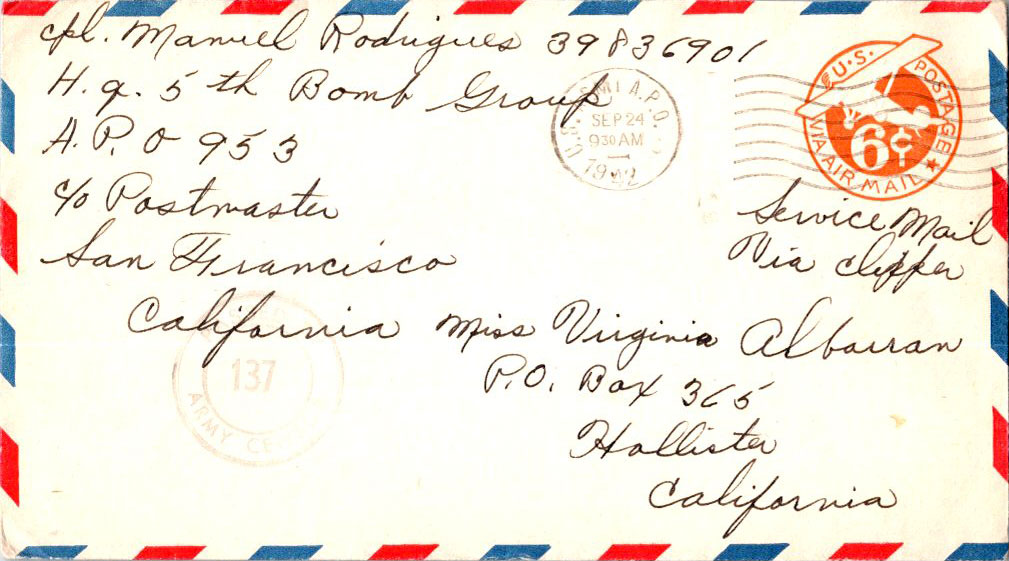 cpl. Manuel Rodrigues 39836901
H.q. 5th Bomb Group
A.P.O 953
c/o Postmaster
San Francisco
California
A.P.O.
SEP 24
930 AM
1942
U.S. POSTAGE
6¢
VIA AIR MAIL
Service Mail
Via clipper
Miss Virginia Albarran
P.O. Box 365
Hollister
California
137
ARMY